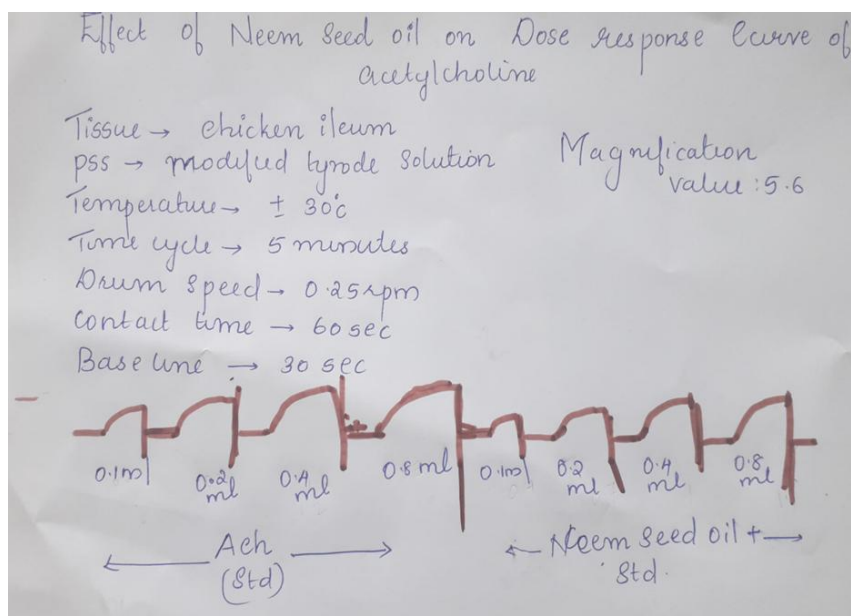 Effect of Neem Seed oil on Dose response Curve of
acetylcholine
Tissue → chicken ileum
PSS → modified tyrode solution
Temperature → ± 30°c
Time cycle → 5 minutes
Drum speed → 0.25 rpm
Contact time → 60 sec
Base line → 30 sec
Magnification
value : 5.6
0.1ml
0.2 ml
0.4 ml
0.8 ml
0.1ml
0.2 ml
0.4 ml
0.8 ml
Ach
(Std)
Neem seed oil +
Std.